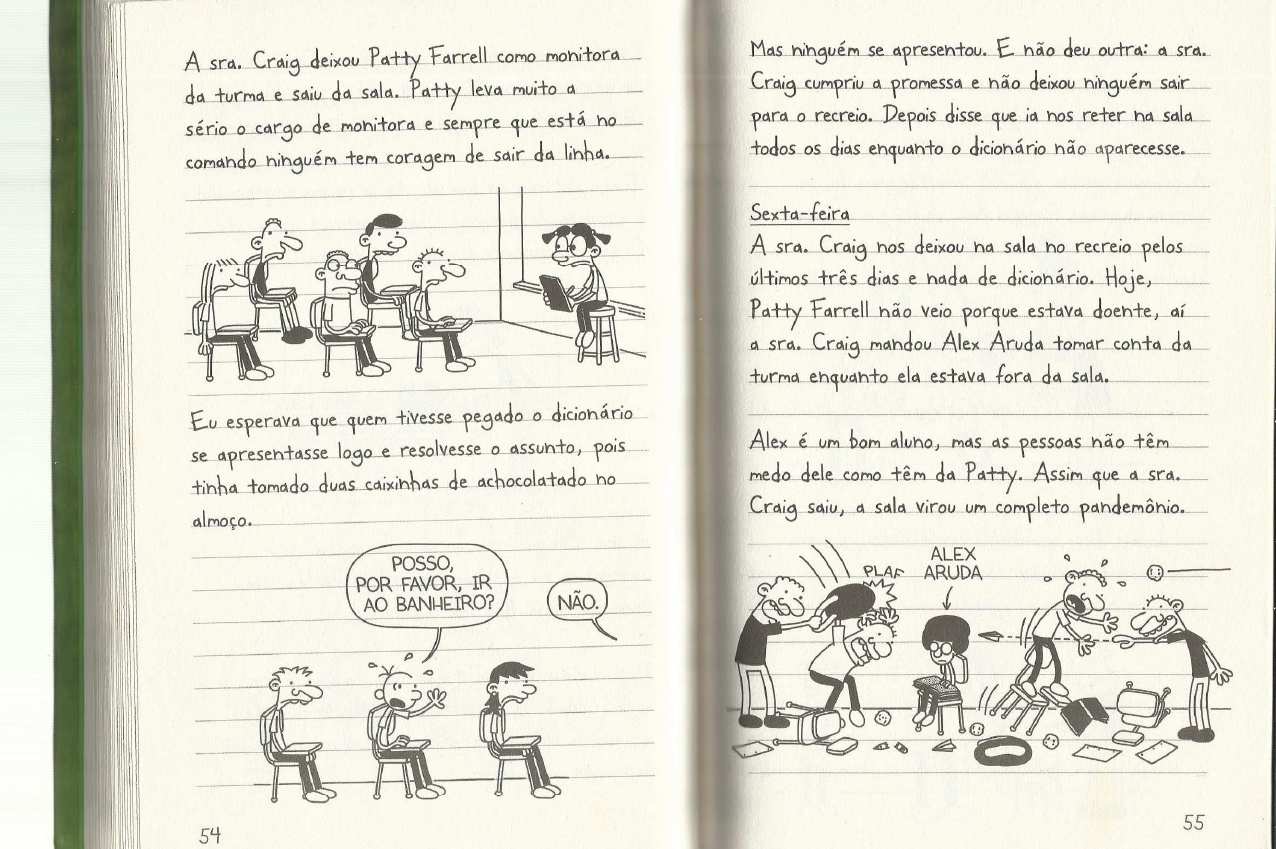 A sra. Craig deixou Patty Farrell como monitora
da turma e saiu da sala. Patty leva muito a
sério o cargo de monitora e sempre que está no
comando ninguém tem coragem de sair da linha.
Eu esperava que quem tivesse pegado o dicionário
se apresentasse logo e resolvesse o assunto, pois
tinha tomado duas caixinhas de achocolatado no
almoço.
POSSO,
POR FAVOR, IR
AO BANHEIRO?
NÃO.
54
Mas ninguém se apresentou. E não deu outra: a sra.
Craig cumpriu a promessa e não deixou ninguém sair
para o recreio. Depois disse que ia nos reter na sala
todos os dias enquanto o dicionário não aparecesse.
Sexta-feira
A sra. Craig nos deixou na sala no recreio pelos
últimos três dias e nada de dicionário. Hoje,
Patty Farrell não veio porque estava doente, aí
a sra. Craig mandou Alex Aruda tomar conta da
turma enquanto ela estava fora da sala.
Alex é um bom aluno, mas as pessoas não têm
medo dele como têm da Patty. Assim que a sra.
Craig saiu, a sala virou um completo pandemônio.
PLAF
ALEX
ARUDA
55